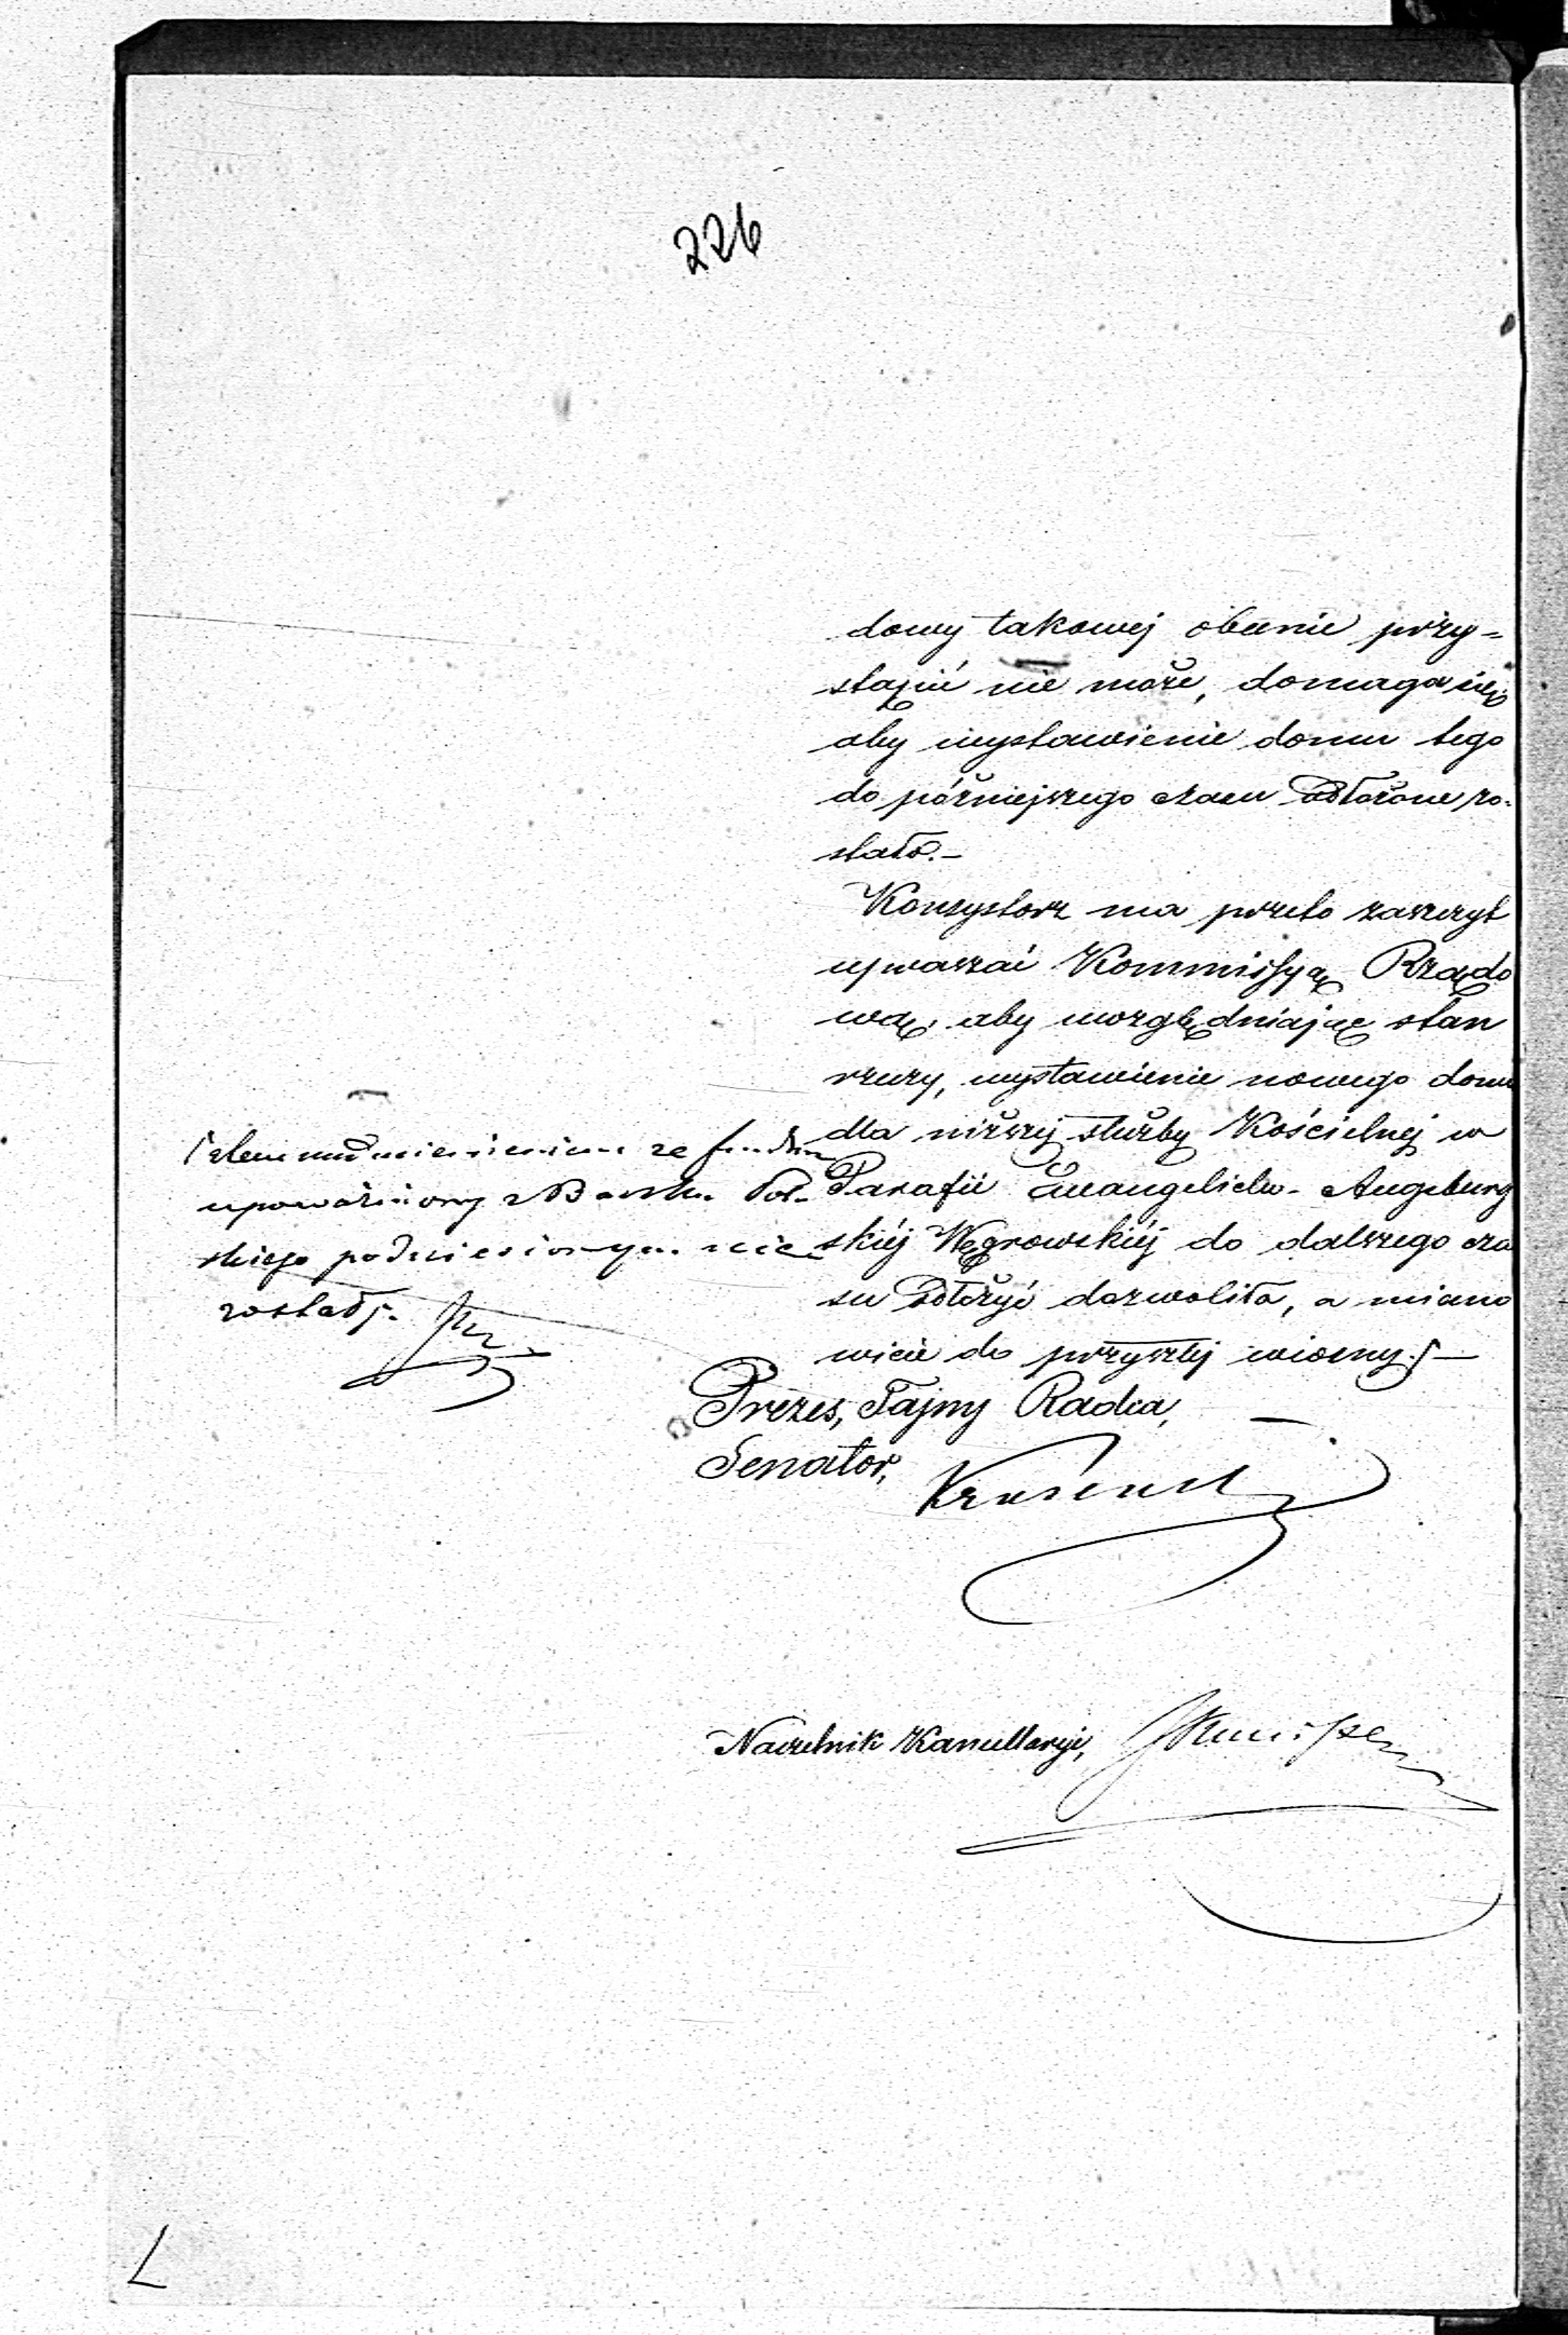 226
dowy takowej obecnie przy=
stąpić nie może, domaga się,
aby wystawienie domu tego
do późniejszego czasu odłożone zo-
stało.—
Konsystorz ma przeto zaszczyt
upraszać Kommissyą Rządo
wą, aby uwzględniając stan
rzeczy, wystawienie nowego domu
dla niższej służby Kościelnej w
Parafii Ewangelicko-Augsburg
skiéj Węgrowskiéj do dalszego cza
su odłożyć dozwoliła, a miano
wicie do przyszłej wiosny.—
ze fundusz
upoważniony z Banku Pol-
skiego podniesionym nie
został.
Prezes, Tajny Radca,
Senator,
Naczelnik Kancellaryi,